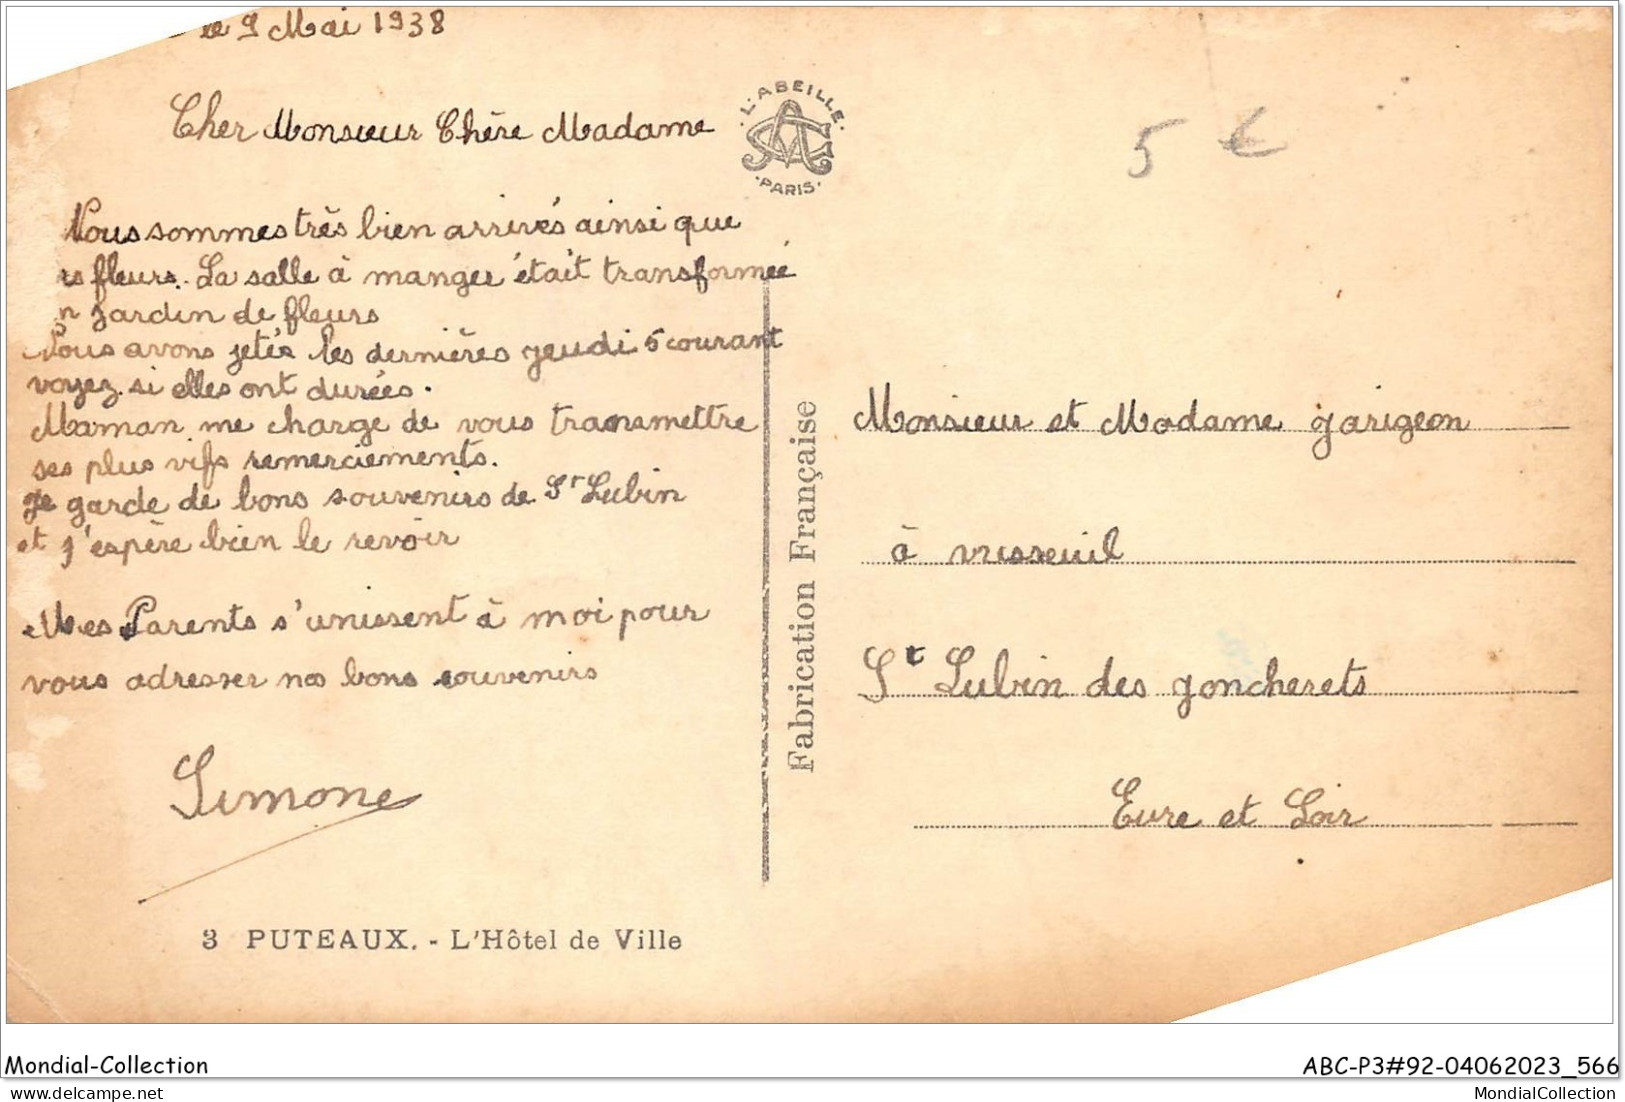 le 9 Mai 1938
Cher Monsieur Chère Madame
Nous sommes très bien arrivés ainsi que
fleurs. La salle à manger était transformée
n jardin de fleurs
Nous avons jetés les dernières jeudi 5 courant
voyez si elles ont durées.
Maman me charge de vous transmettre
ses plus vifs remerciements.
Je garde de bons souvenirs de St Lubin
et j'espère bien le revoir
Mes Parents s'unissent à moi pour
vous adresser nos bons souvenirs
Simone
3 PUTEAUX. - L'Hôtel de Ville
L'ABEILLE
PARIS
Fabrication Française
5 €
Monsieur et Madame garigeon
à
St Lubin des joncherets
Eure et Loir
Mondial-Collection
ABC-P3#92-04062023_566
MondialCollection